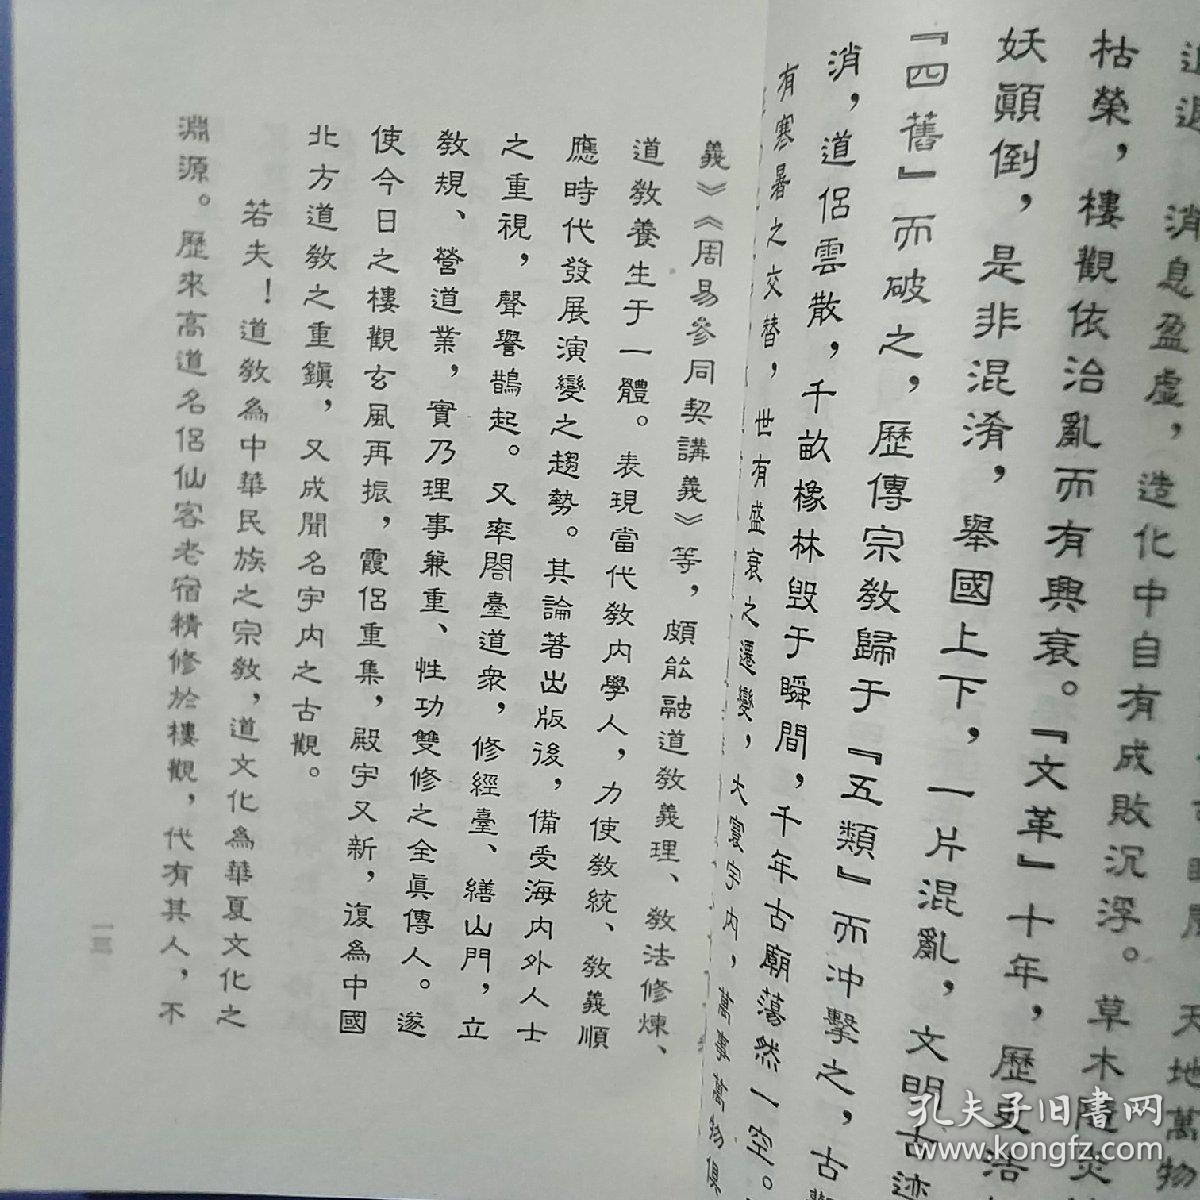 消息盈虛，造化中自有成敗沉浮。草木隨
枯榮，樓觀依治亂而有興衰。『文革』十年，歷史
妖顛倒，是非混淆，舉國上下，一片混亂，文明古
『四舊』而破之，歷傳宗教歸于『五類』而沖擊之，古
消，道侶雲散，千畝橡林毀于瞬間，千年古廟蕩然一空。
有寒暑之交替，世有盛衰之遷變，大寰宇内，萬事萬物俱
義》《周易參同契講義》等，頗能融道教義理、教法修煉、
道教養生于一體。表現當代教内學人，力使教統、教義順
應時代發展演變之趨勢。其論著出版後，備受海内外人士
之重視，聲譽鵲起。又率閤臺道衆，修經臺、繕山門，立
教規、營道業，實乃理事兼重、性功雙修之全真傳人。遂
使今日之樓觀玄風再振，霞侶重集，殿宇又新，復為中國
北方道教之重鎮，又成聞名宇内之古觀。
若夫！道教為中華民族之宗教，道文化為華夏文化之
淵源。歷來高道名侶仙客老宿精修於樓觀，代有其人，不
一三
孔夫子旧書网
www.kongfz.com